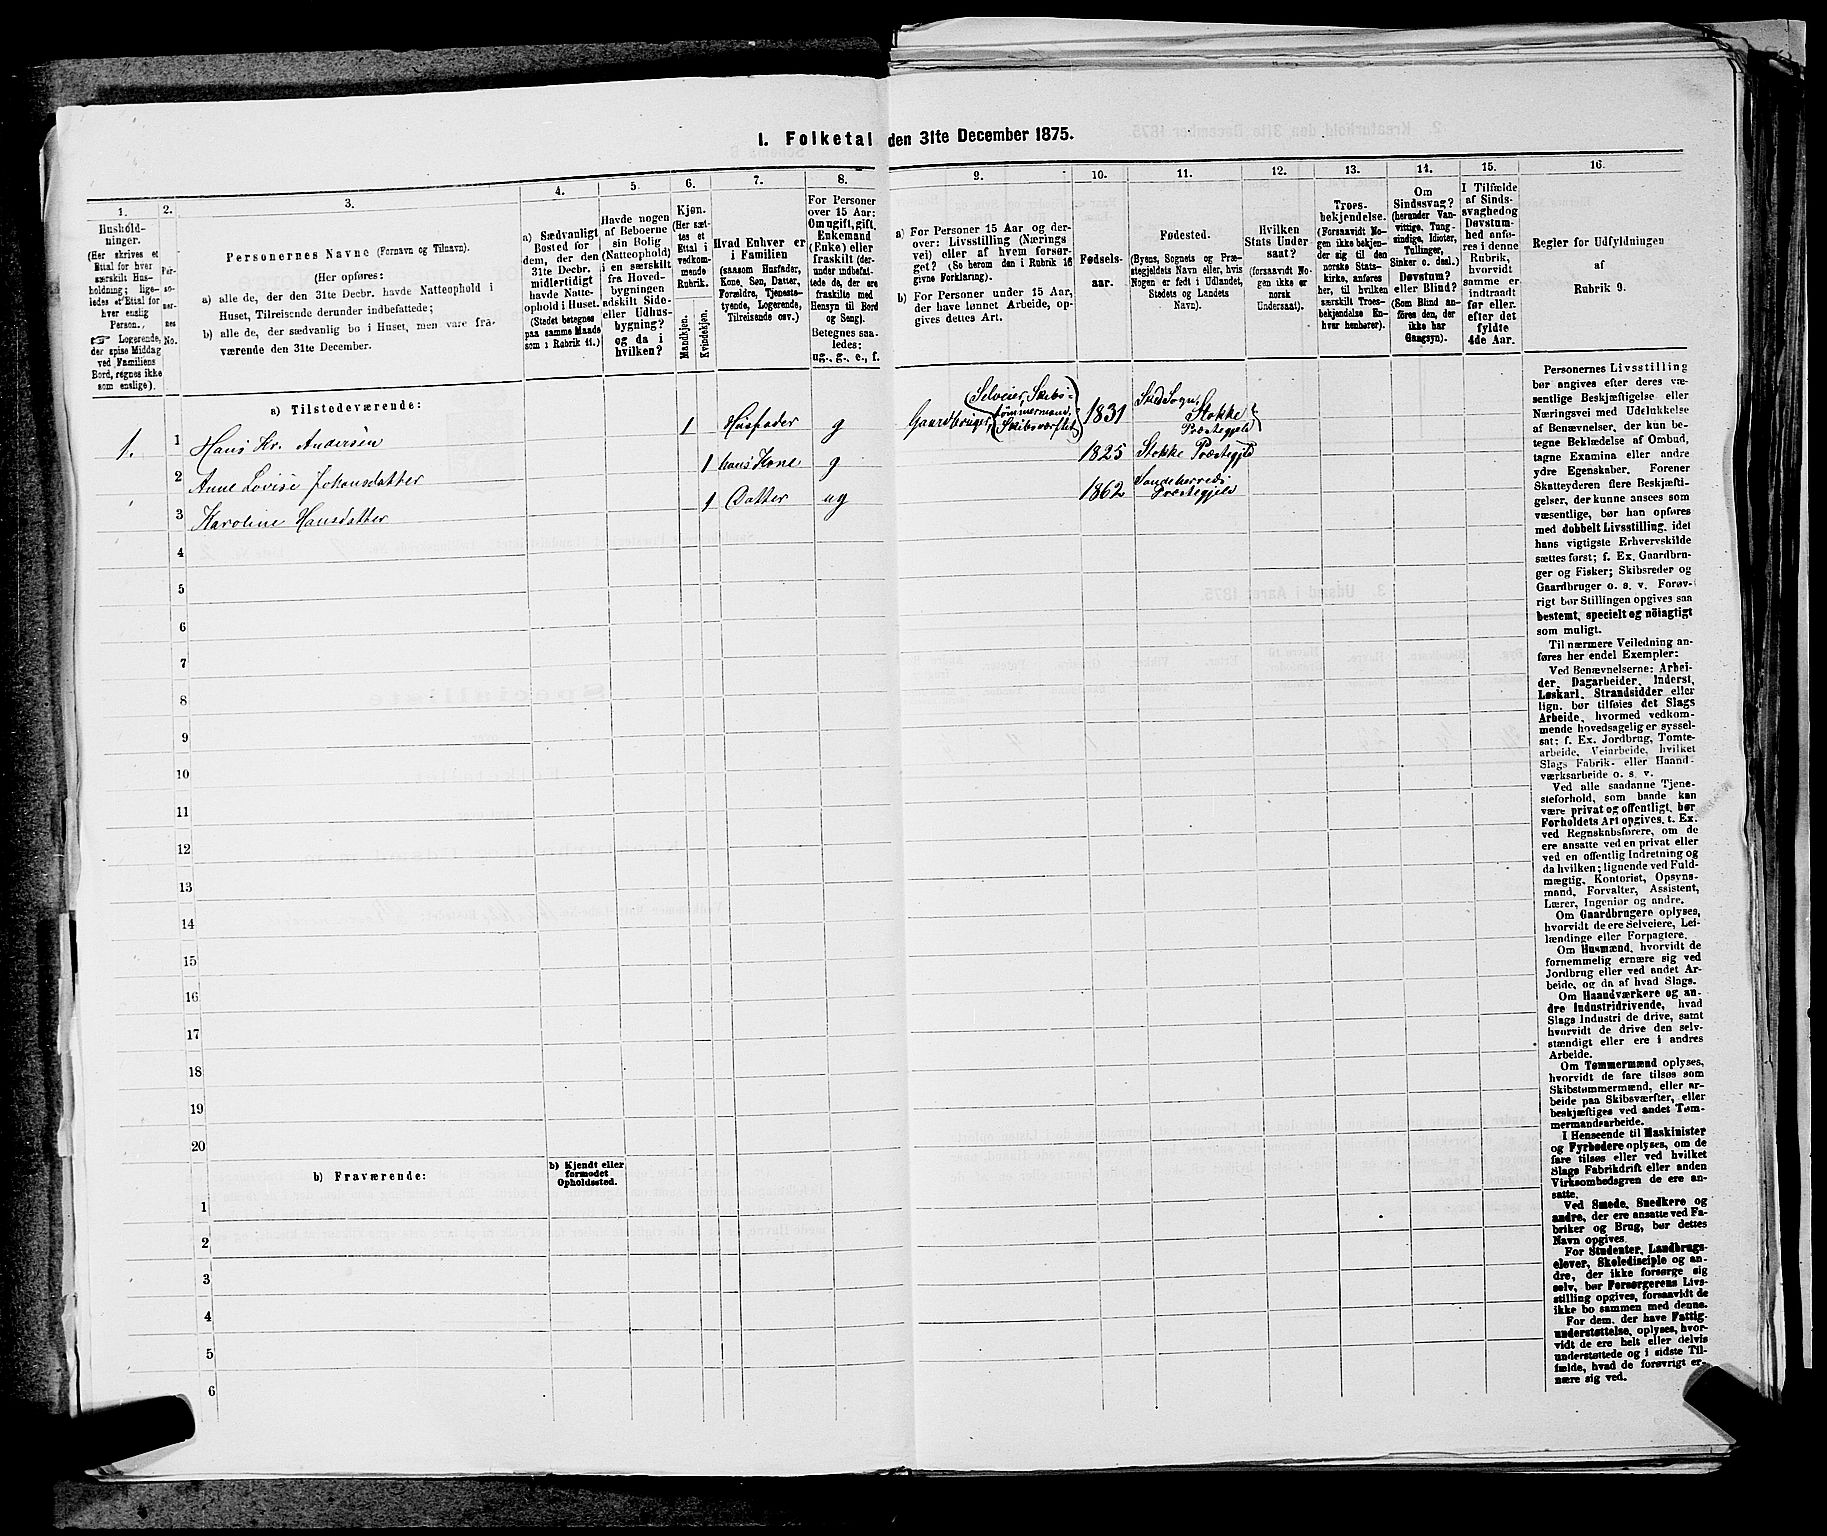 I. Folketal den 31te December 1875.
1.
2.
3.
4.
5.
6.
7.
8.
9.
10.
11.
12.
13.
14.
15.
16.
Hushold-
ninger.
(Her skrives et
Ettal for hver
særskilt Hus-
holdning; lige-
ledes et Ettal for
hver enslig
Person.
☞ Logerende,
der spise Middag
ved Familiens
Bord, regnes ikke
som enslige).
Per-
so-
ner-
nes
No.
Personernes Navne (Fornavn og Tilnavn).
(Her opføres:
a) alle de, der den 31te Decbr. havde Natteophold i
Huset, Tilreisende derunder indbefattede;
b) alle de, der sædvanlig bo i Huset, men vare fra-
værende den 31te December.
a) Sædvanligt
Bosted for
dem, der den
31te Decbr.
midlertidigt
havde Natte-
ophold i Huset.
(Stedet betegnes
paa samme Maade
som i Rubrik 11.)
Havde nogen
af Beboerne
sin Bolig
(Natteophold)
i en særskilt
fra Hoved-
bygningen
adskilt Side-
eller Udhus-
bygning?
og da i
hvilken?
Kjøn.
(Her sæt-
tes et
Ettal i
vedkom-
mende
Rubrik.
Mandkjøn.
Kvindekjøn.
Hvad Enhver er
i Familien
(saasom Husfader,
Kone, Søn, Datter,
Forældre, Tjeneste-
tyende, Logerende,
Tilreisende osv.)
For Personer
over 15 Aar:
Om ugift, gift,
Enkemand
(Enke) eller
fraskilt (der-
under indbefat-
tede de, der ere
fraskilte med
Hensyn til Bord
og Seng).
Betegnes saa-
ledes:
ug., g., e., f.
a) For Personer 15 Aar og der-
over: Livsstilling (Nærings
vei) eller af hvem forsør-
get? (Se herom den i Rubrik 16
givne Forklaring).
b) For Personer under 15 Aar,
der have lønnet Arbeide, op-
gives dettes Art.
Fødsels-
aar.
Fødested.
(Byens, Sognets og Præ-
stegjeldets Navn eller, hvis
Nogen er født i Udlandet,
Stedets og Landets
Navn).
Hvilken
Stats Under-
saat?
(forsaavidt No-
gen ikke er
norsk
Undersaat).
Troes-
bekjendelse.
(Forsaavidt No-
gen ikke bekjen-
der sig til den
norske Stats-
kirke, anføres
her, til hvilken
særskilt Troes-
bekjendelse En-
hver henhører).
Om
Sindssvag?
(herunder Van-
vittige, Tung-
sindige, Idioter,
Tullinger,
Sinker o. desl.)
Døvstum?
eller Blind?
(Som Blind an-
føres den, der
ikke har
Gangsyn).
I Tilfælde
af Sinds-
svaghed og
Døvstum-
hed anfø-
res i denne
Rubrik,
hvorvidt
samme er
indtraadt
før eller
efter det
fyldte
4de Aar.
Regler for Udfyldningen
af
Rubrik 9.
a) Tilstedeværende:
1. 1 Hans Kr. Andersen 1 Husfader g Gaardbruger, (Selveier, Skibs-
tømmermand,
Skibsværftet) 1831 Skee Sogn,
Stokke
Præstegjeld
2 Anne Lovise Johansdatter 1 hans Kone g 1825 Stokke Præstegjeld
3 Karoline Hansdatter 1 Datter ug 1862 Sandeherreds
Præstegjeld
4
5
6
7
8
9
10
11
12
13
14
15
16
17
18
19
20
b) Fraværende:
b) Kjendt eller
formodet
Opholdssted.
1
2
3
4
5
6
Personernes Livsstilling
bør angives efter deres væ-
sentlige Beskjæftigelse eller
Næringsvei med Udelukkelse
af Benævnelser, der kun be-
tegne Beklædelse af Ombud,
tagne Examina eller andre
ydre Egenskaber. Forener
Skatteyderen flere Beskjæfti-
gelser, der kunne ansees som
væsentlige, bør han opføres
med dobbelt Livsstilling, idet
hans vigtigste Erhvervskilde
sættes først; f. Ex. Gaardbru-
ger og Fisker; Skibsreder og
Gaardbruger o. s. v. Forøv-
rigt bør Stillingen opgives saa
bestemt, specielt og nöiagtigt
som muligt.
Til nærmere Veiledning an-
føres her endel Exempler:
Ved Benævnelserne: Arbei-
der, Dagarbeider, Inderst,
Løskarl, Strandsidder eller
lign. bør tilføies det Slags
Arbeide, hvormed vedkom-
mende hovedsagelig er syssel-
sat; f. Ex. Jordbrug, Tomte-
arbeide, Veiarbeide, hvilket
Slags Fabrik- eller Haand-
værksarbeide o. s. v.
Ved alle saadanne Tjene-
steforhold, som baade kan
være privat og offentligt, bør
Forholdets Art opgives, t. Ex.
ved Regnskabsførere, om de
ere ansatte ved en privat eller
ved en offentlig Indretning og
da hvilken; lignende ved Fuld-
mægtig, Kontorist, Opsyns-
mand, Forvalter, Assistent,
Lærer, Ingeniør og andre.
Om Gaardbrugere oplyses,
hvorvidt de ere Selveiere, Lei-
lændinge eller Forpagtere.
Om Husmænd, hvorvidt de
fornemmelig ernære sig ved
Jordbrug eller ved andet Ar-
beide, og da af hvad Slags.
Om Haandværkere og an-
dre Industridrivende, hvad
Slags Industri de drive, samt
hvorvidt de drive den selv-
stændigt eller ere i andres
Arbeide.
Om Tømmermænd oplyses,
hvorvidt de fare tilsøs som
Skibstømmermænd, eller ar-
beide paa Skibsværfter, eller
beskjæftiges ved andet Tøm-
mermandsarbeide.
I Henseende til Maskinister
og Fyrbødere oplyses, om de
fare tilsøs eller ved hvilket
Slags Fabrikdrift eller anden
Virksomhedsgren de ere an-
satte.
Ved Smede, Snedkere og
andre, der ere ansatte ved Fa-
briker og Brug, bør dettes
Navn opgives.
For Studenter, Landbrugs-
elever, Skoledisciple og an-
dre, der ikke forsørge sig
selv, bør Forsørgerens Livs-
stilling opgives, forsaavidt de
ikke bo sammen med denne.
For dem, der have Fattig-
understøttelse, oplyses, hvor-
vidt de ere helt eller delvis
understøttede og i sidste Til-
fælde, hvad de forøvrigt er-
nære sig ved.